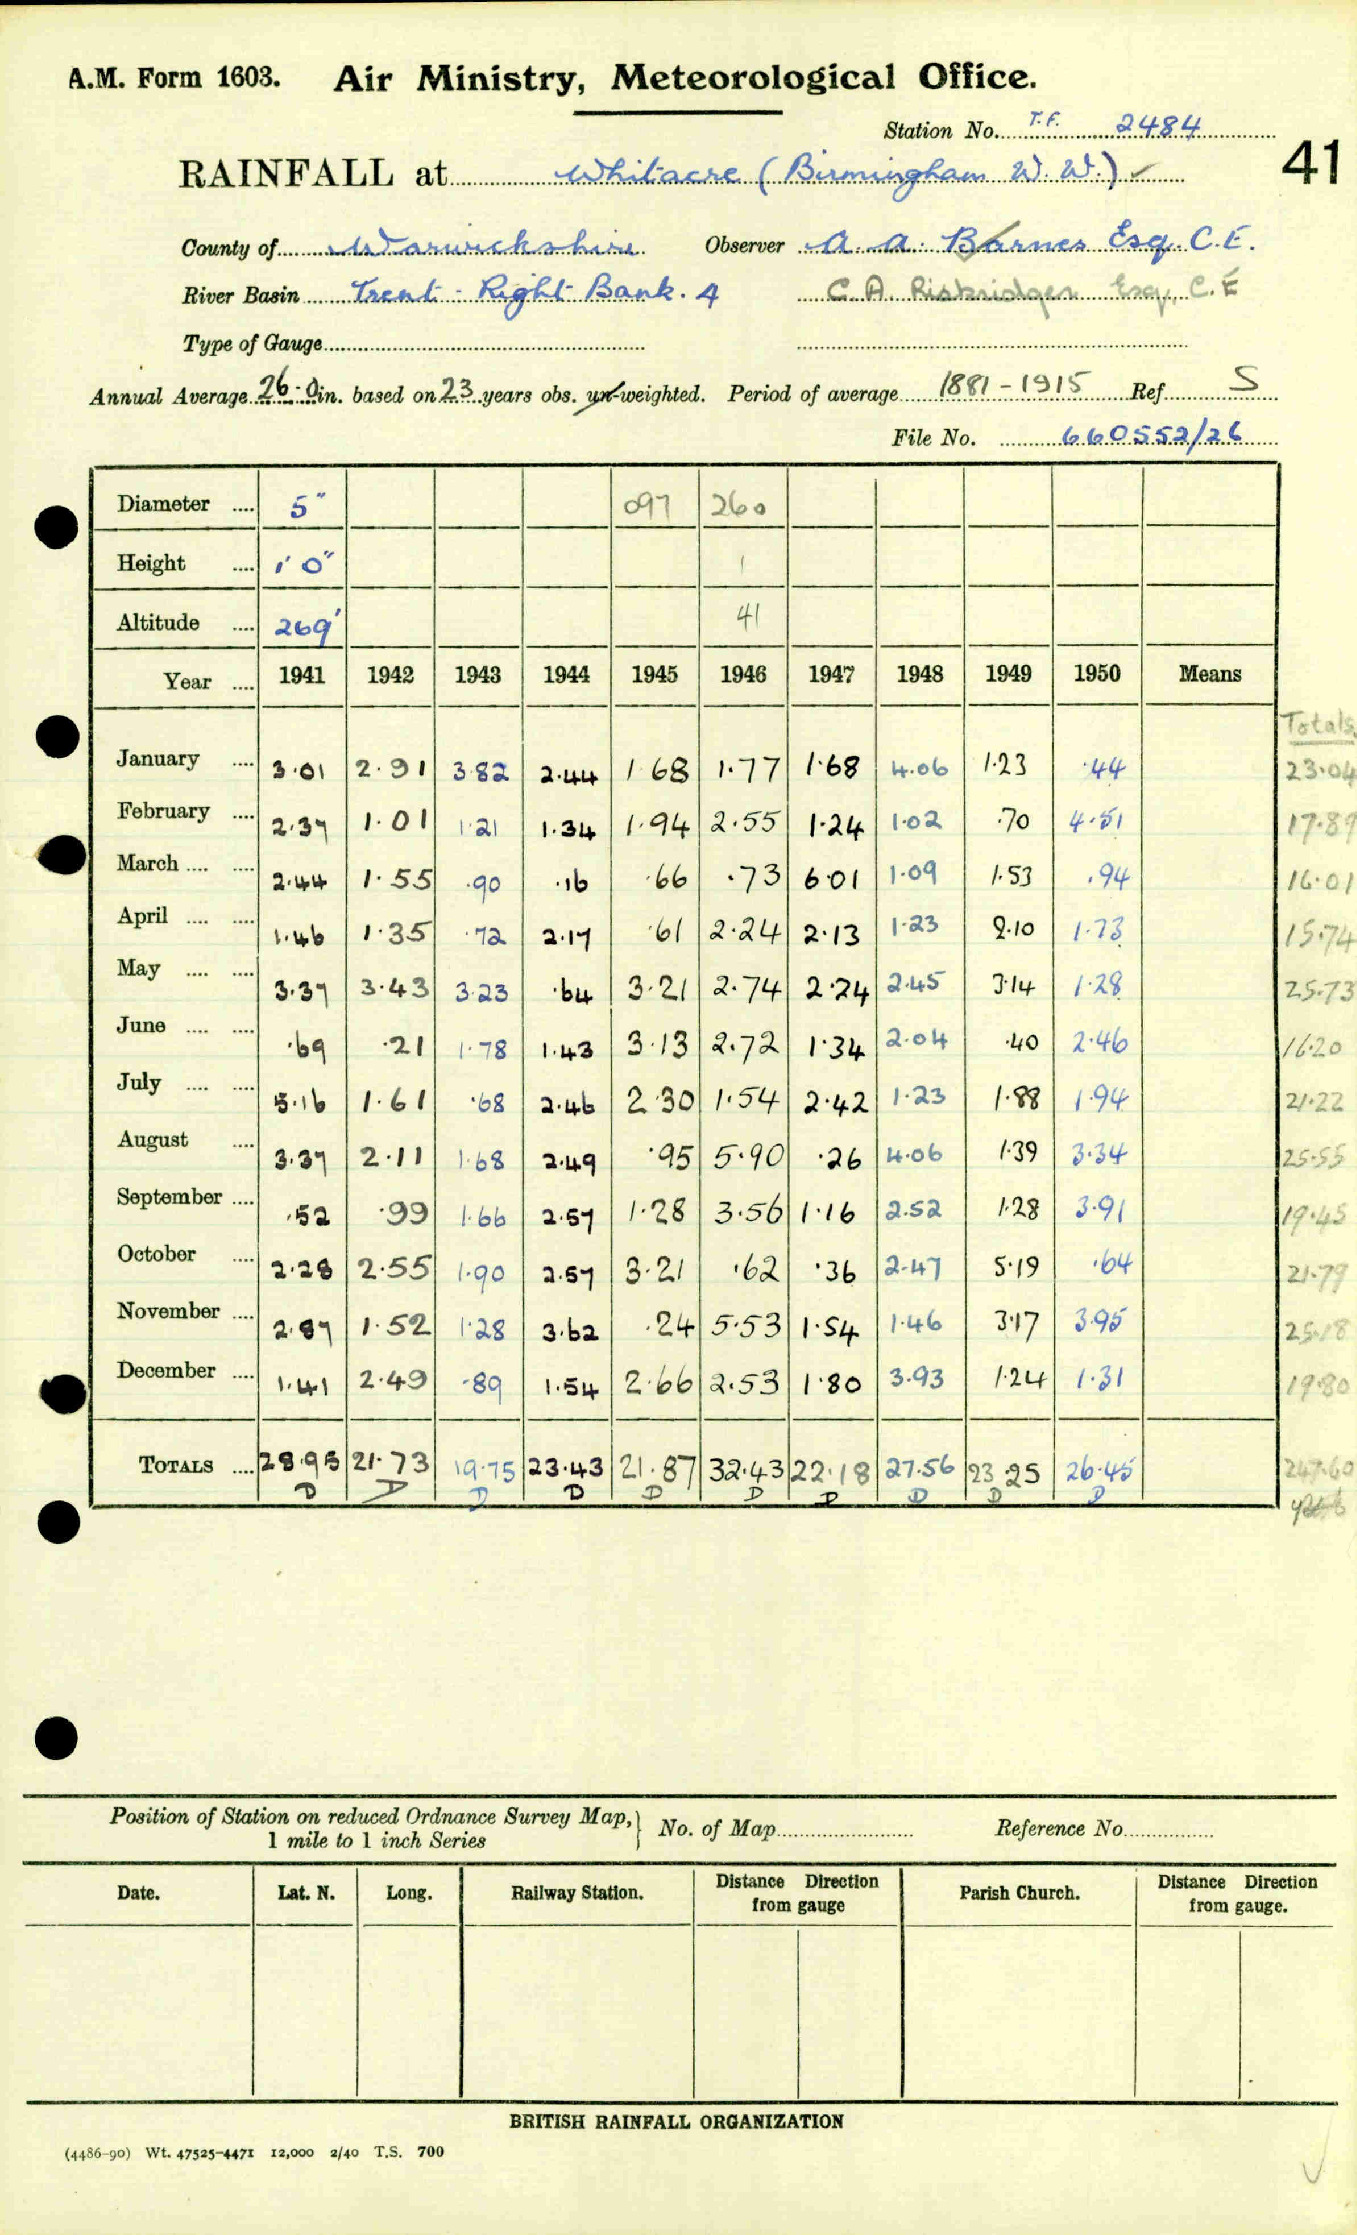 A.M. Form 1603. Air Ministry, Meteorological Office.
Station No. T.F. 2484
41
RAINFALL at Whitacre (Birmingham W. W.) ✓
County of Warwickshire Observer A. A. Barnes Esq. C.E.
River Basin Trent - Right Bank. 4 C. A. Esq., C.E
Type of Gauge
Annual Average 26.0 in. based on 23 years obs. un-weighted. Period of average 1881 - 1915 Ref. S
File No. 660552/26
Diameter .... 5" 097 260
Height .... 1' 0" 1
Altitude .... 269' 41
Year .... 1941 1942 1943 1944 1945 1946 1947 1948 1949 1950 Means
Totals
January .... 3.01 2.91 3.82 2.44 1.68 1.77 1.68 4.06 1.23 .44 23.04
February .... 2.37 1.01 1.21 1.34 1.94 2.55 1.24 1.02 .70 4.51 17.89
March .... .... 2.44 1.55 .90 .16 .66 .73 6.01 1.09 1.53 .94 16.01
April .... .... 1.46 1.35 .72 2.17 .61 2.24 2.13 1.23 2.10 1.73 15.74
May .... .... 3.37 3.43 3.23 .64 3.21 2.74 2.24 2.45 3.14 1.28 25.73
June .... .... .69 .21 1.78 1.43 3.13 2.72 1.34 2.04 .40 2.46 16.20
July .... .... 5.16 1.61 .68 2.46 2.30 1.54 2.42 1.23 1.88 1.94 21.22
August .... 3.37 2.11 1.68 2.49 .95 5.90 .26 4.06 1.39 3.34 25.55
September .... .52 .99 1.66 2.57 1.28 3.56 1.16 2.52 1.28 3.91 19.45
October .... 2.28 2.55 1.90 2.57 3.21 .62 .36 2.47 5.19 .64 21.79
November .... 2.87 1.52 1.28 3.62 .24 5.53 1.54 1.46 3.17 3.95 25.18
December .... 1.41 2.49 .89 1.54 2.66 2.53 1.80 3.93 1.24 1.31 19.80
TOTALS .... 28.95 21.73 19.75 23.43 21.87 32.43 22.18 27.56 23.25 26.45 247.60
D D D D D D D D D D
Position of Station on reduced Ordnance Survey Map, } No. of Map Reference No.
1 mile to 1 inch Series
Date. Lat. N. Long. Railway Station. Distance from gauge Direction Parish Church. Distance Direction from gauge.
BRITISH RAINFALL ORGANIZATION
(4486-90) Wt. 47525-4471 12,000 2/40 T.S. 700